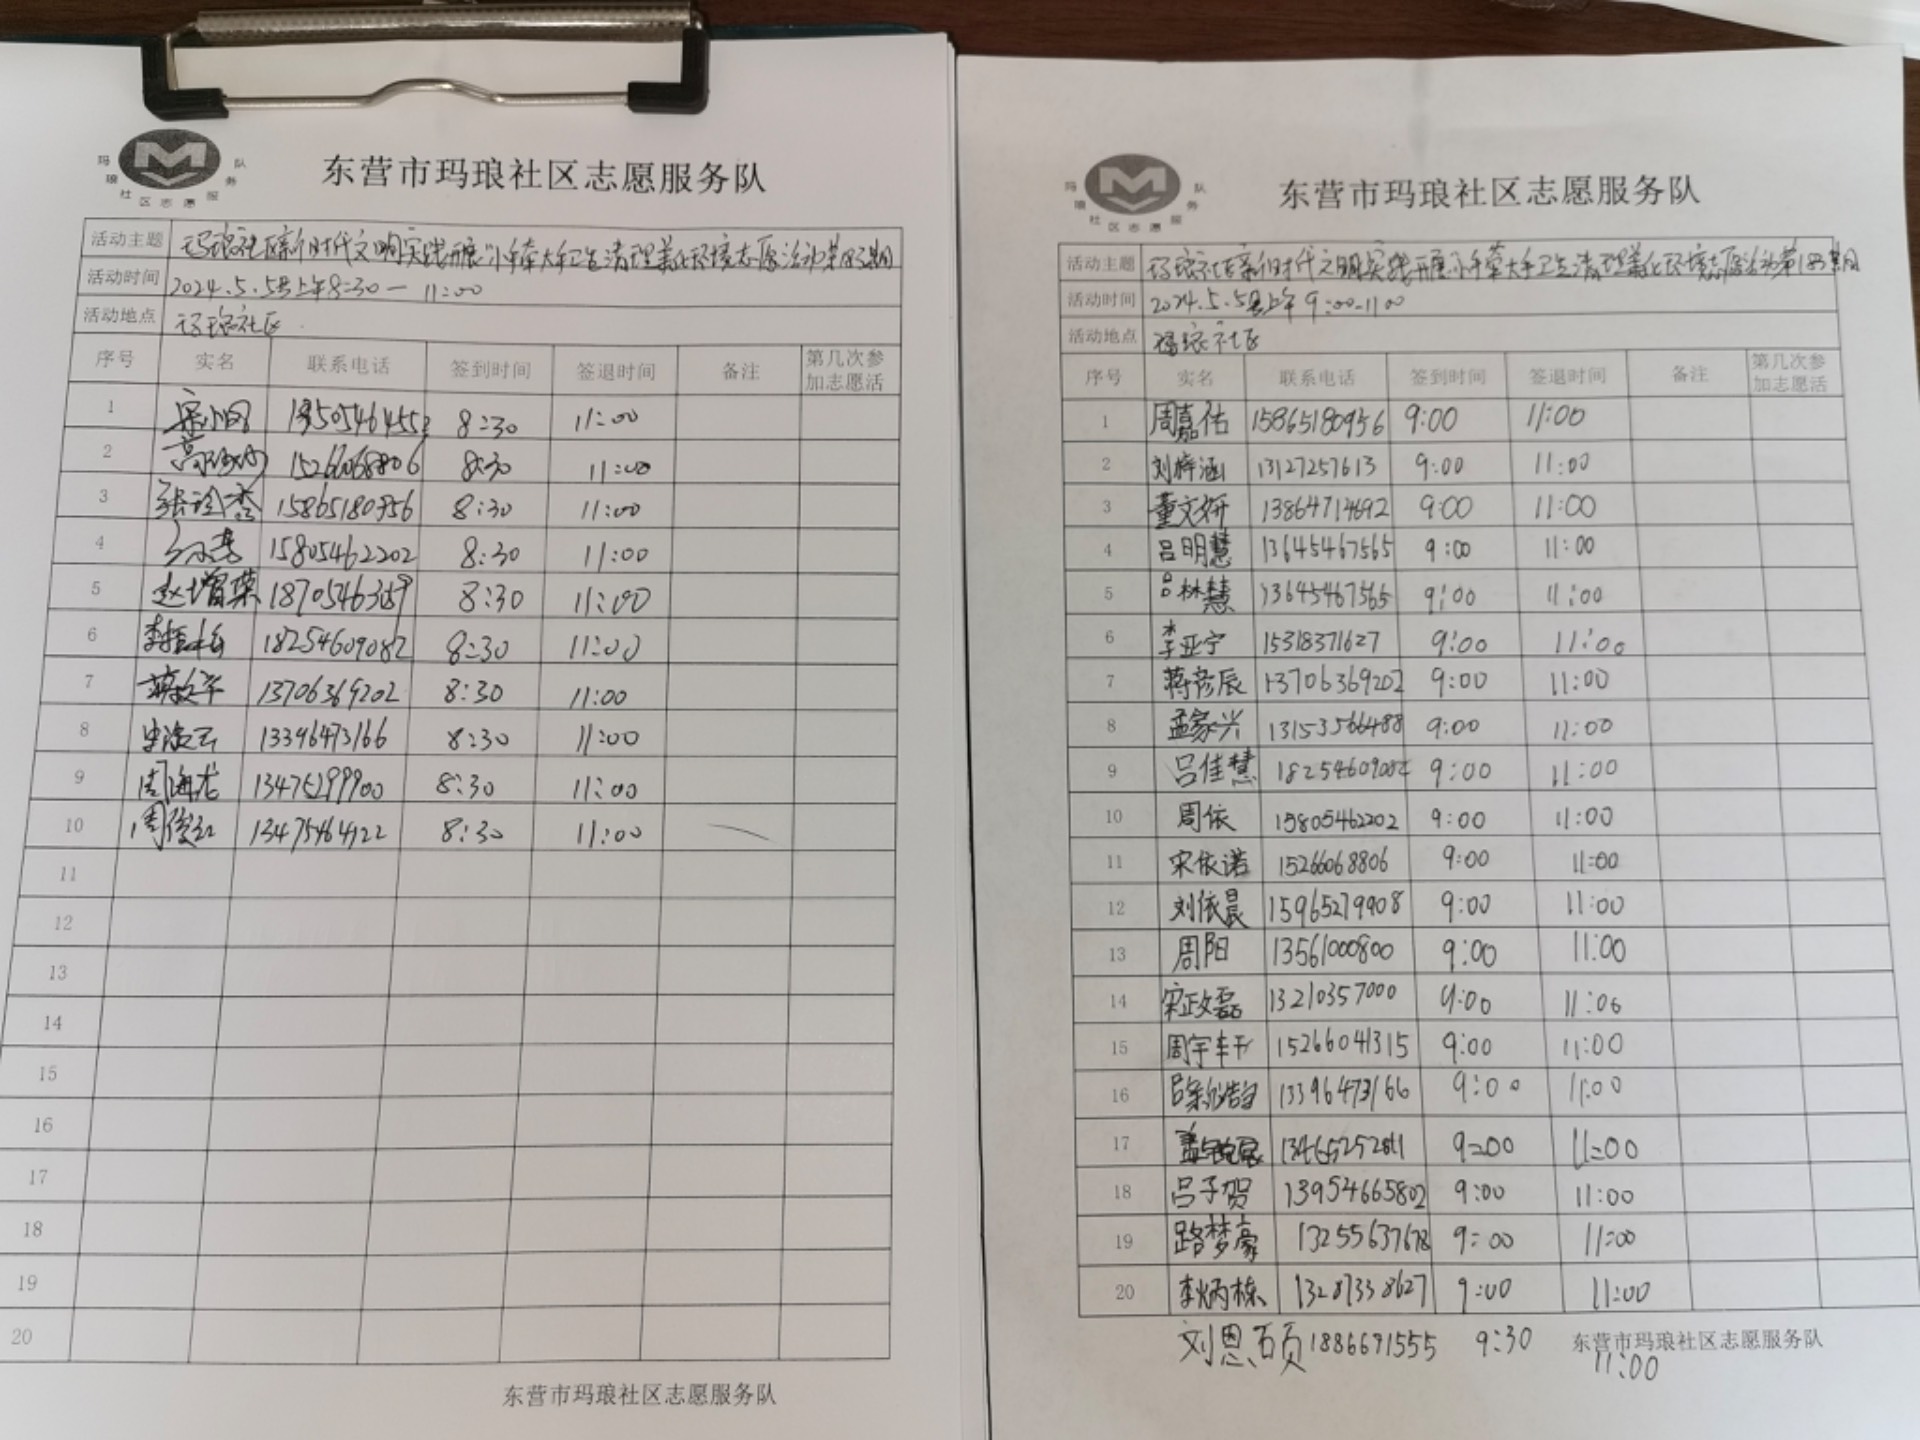 玛琅社区志愿服务队
东营市玛琅社区志愿服务队
活动主题 玛琅社区新时代文明实践开展"小手牵大手卫生清理美化环境志愿活动第183期
活动时间 2024.5.5号上午8:30—11:00
活动地点 玛琅社区
序号 实名 联系电话 签到时间 签退时间 备注 第几次参加志愿活
1 8:30 11:00
2 15266068806 8:30 11:00
3 15865180956 8:30 11:00
4 15805462202 8:30 11:00
5 赵增荣 8:30 11:00
6 18254609082 8:30 11:00
7 13706369202 8:30 11:00
8 13396473166 8:30 11:00
9 周海龙 13475299900 8:30 11:00
10 周俊红 13475464122 8:30 11:00
11
12
13
14
15
16
17
18
19
20
东营市玛琅社区志愿服务队
玛琅社区志愿服务队
东营市玛琅社区志愿服务队
活动主题 玛琅社区新时代文明实践开展小手牵大手卫生清理美化环境志愿活动第183期
活动时间 2024.5.5号上午9:00-1100
活动地点 玛琅社区
序号 实名 联系电话 签到时间 签退时间 备注 第几次参加志愿活
1 周嘉佑 15865180956 9:00 11:00
2 刘梓涵 13127257613 9:00 11:00
3 董文妍 13864714692 9:00 11:00
4 吕明慧 13645467565 9:00 11:00
5 吕林慧 13645467565 9:00 11:00
6 李亚宁 15318371627 9:00 11:00
7 蒋彦辰 13706369202 9:00 11:00
8 孟家兴 13153566488 9:00 11:00
9 吕佳慧 18254609082 9:00 11:00
10 周依 15805462202 9:00 11:00
11 宋依诺 15266068806 9:00 11:00
12 刘依晨 15965279908 9:00 11:00
13 周阳 13561000800 9:00 11:00
14 宋政磊 13210357000 9:00 11:00
15 周宇轩 15266041315 9:00 11:00
16 13396473166 9:00 11:00
17 9:00 11:00
18 吕子贺 13954665802 9:00 11:00
19 路梦豪 13255637678 9:00 11:00
20 李炳栋 13287338627 9:00 11:00
刘恩硕 1886691555 9:30 11:00
东营市玛琅社区志愿服务队